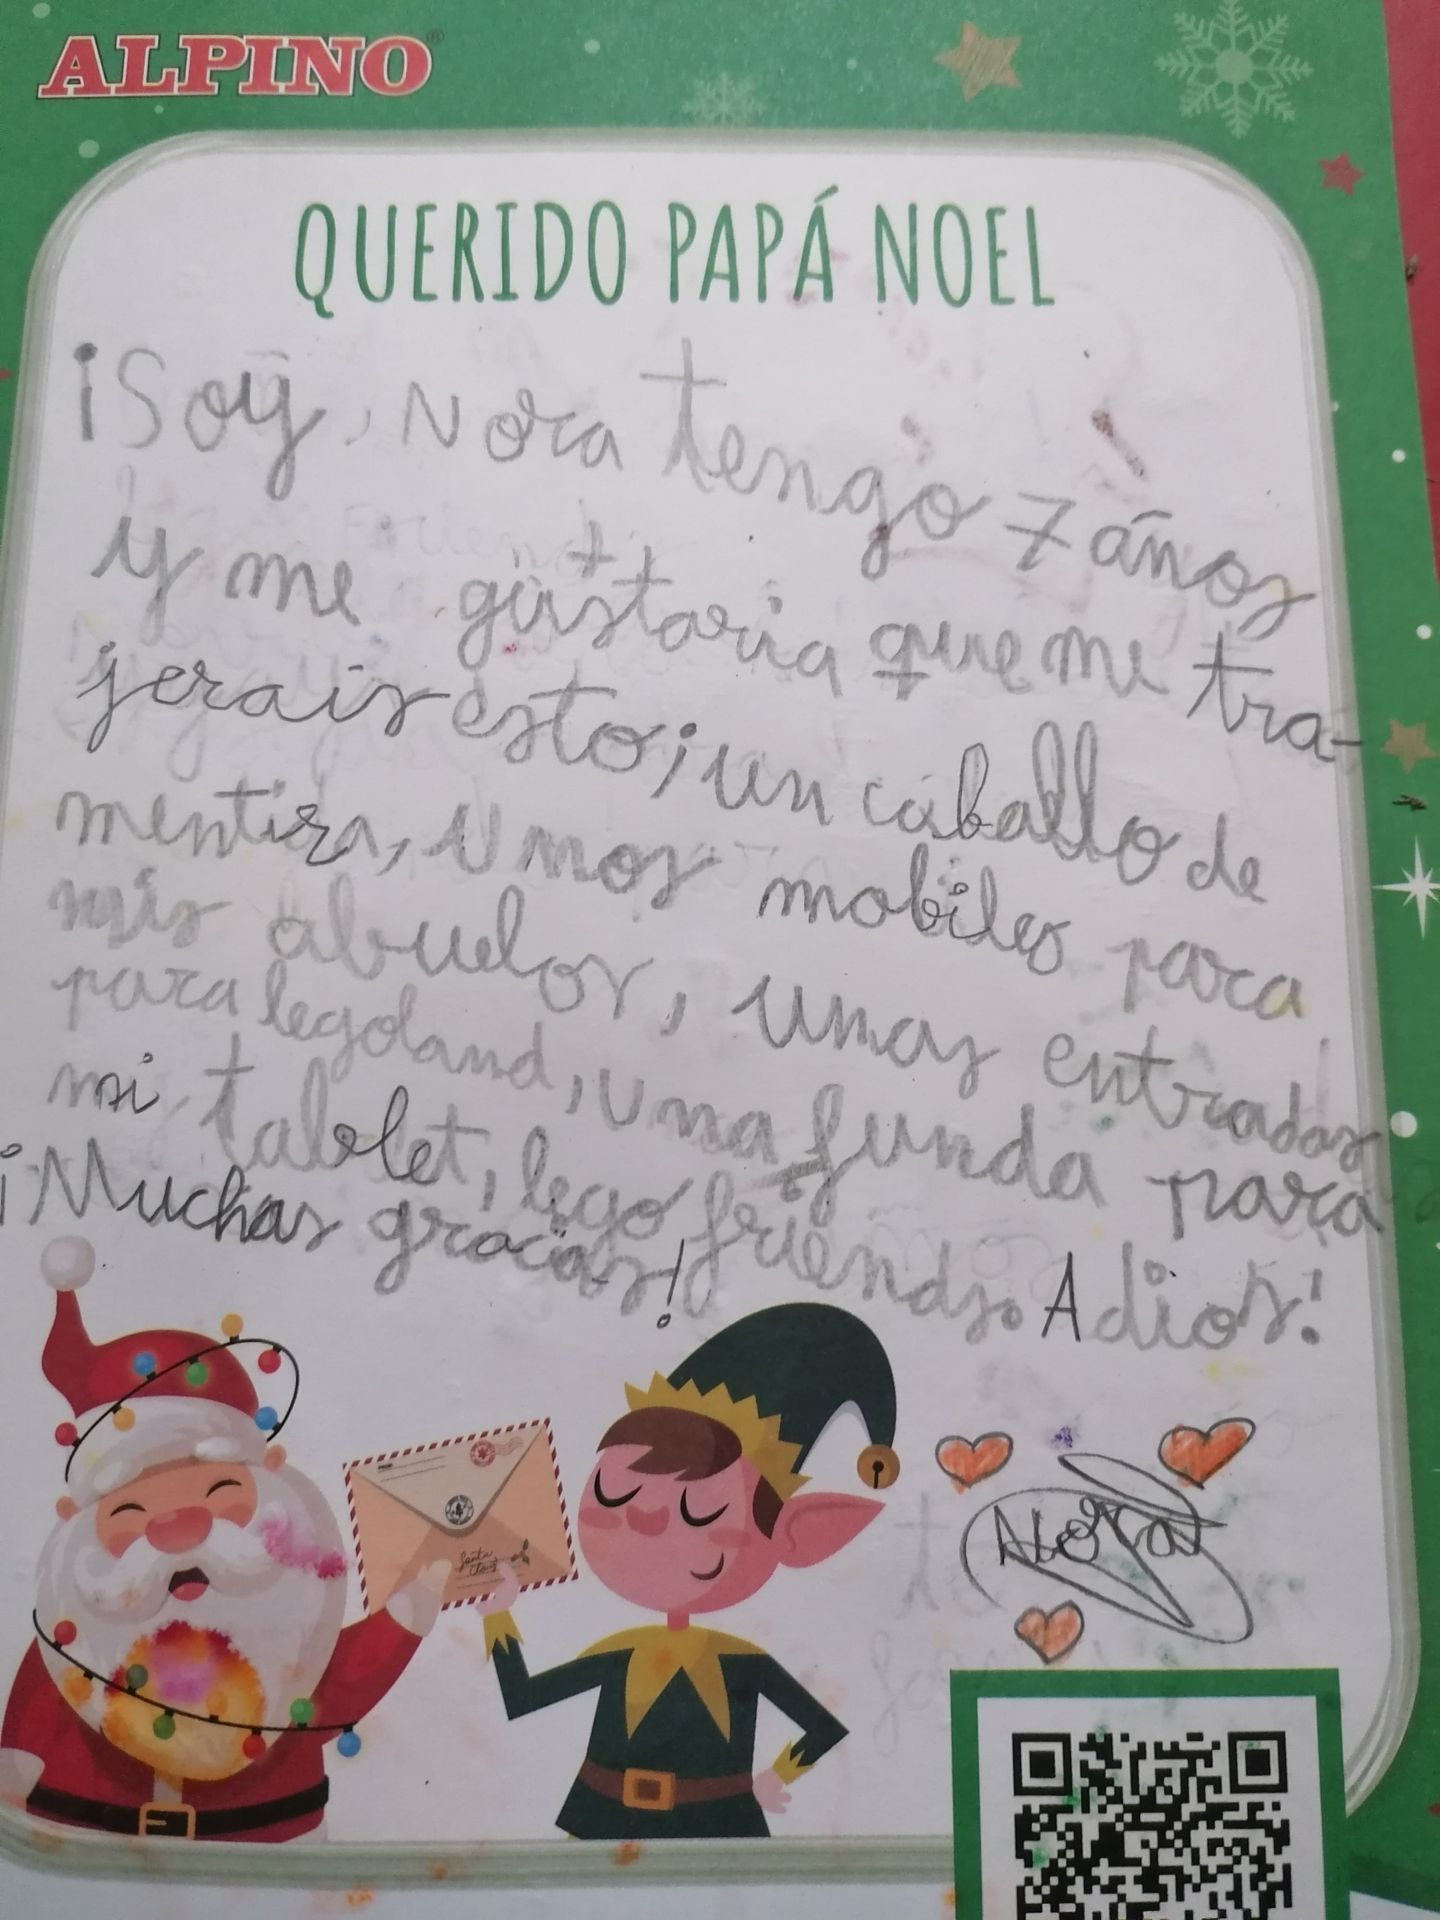 ALPINO®
QUERIDO PAPÁ NOEL
¡Soy, Nora tengo 7 años
y me gustaria que me tra-
jerais esto; un caballo de
mentira, unos mobiles para
mis abuelos, unas entradas
para legoland, una funda para
mi tablet, lego friends. Adios!
¡Muchas gracias!
Santa Claus
Nora